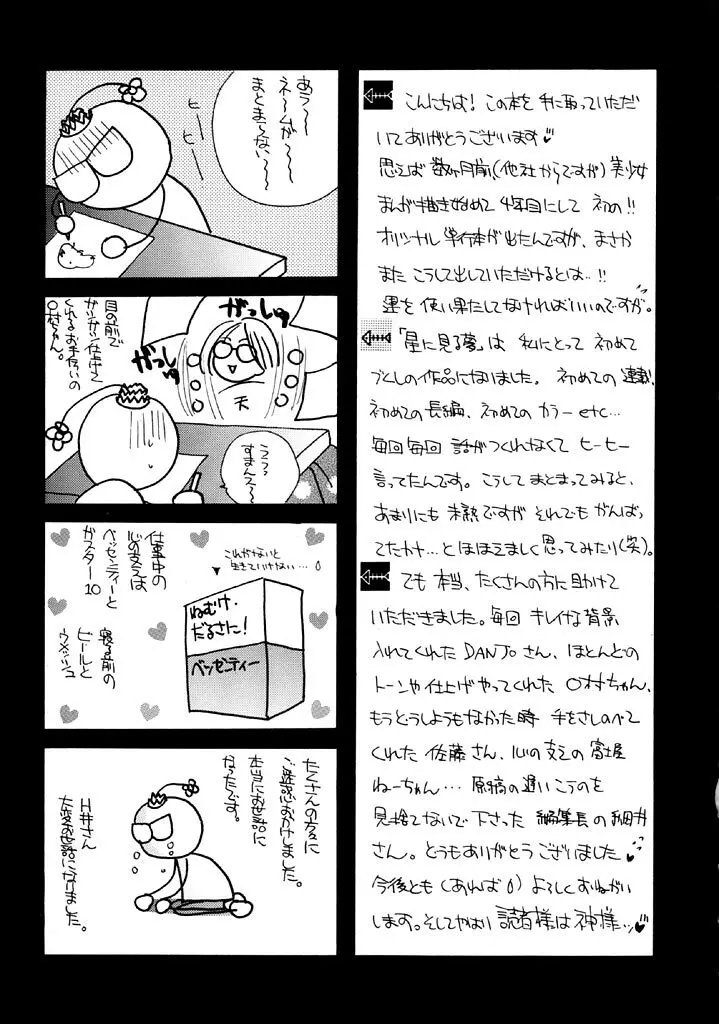 こんにちは！この本を手に取っていただ
いてありがとうございます♥
思えば数ヶ月前、(他社からですが)美少女
まんが描き始めて4年目にして初の!!
オリジナル単行本が出たんですが、まさか
またこうして出していただけるとは…!!
運を使い果たしてなければいいのですが。
「星に見る夢」は私にとって初めて
づくしの作品になりました。初めての連載、
初めての長編、初めてのカラーetc…
毎回毎回話がつくれなくてヒーヒー
言ってたんです。こうしてまとまってみると、
あまりにも未熟ですがそれでもがんばっ
てたわナ…とほほえましく思ってみたり(笑)。
でも本当、たくさんの方に目かけて
いただきました。毎回キレイな背景
入れてくれたDANJOさん、ほとんどの
トーンや仕上げやってくれた〇村ちゃん、
もうどうしようもなかった時手をさしのべて
くれた佐藤さん、心の支えの富士屋
ねーちゃん…原稿の遅いこのを
見捨てないで下さった編集長の細井
さん。どうもありがとうございました♥
今後とも(あれば)よろしくおねがい
します。そしてやはり読者様は神様…♥
あう〜〜
ネームが〜〜
まとまらない〜〜
ヒー
ヒー
目の前で
ガツガツ仕上て
くれるお手伝いの
〇村ちゃん。
がっしゅ
がっしゅ
天
ううっ
すまんえ〜
仕事中の
心の支えは
ベッセンティーと
ガスター10
寝る前の
ビールと
ウメッシュ
これがないと
生きていけない…
ねむけ・
だるさに！
ベッセンティー
たくさんの方々に
ご迷惑おかけしました。
本当にお世話に
なったです。
H井さん
大変お世話になりました。